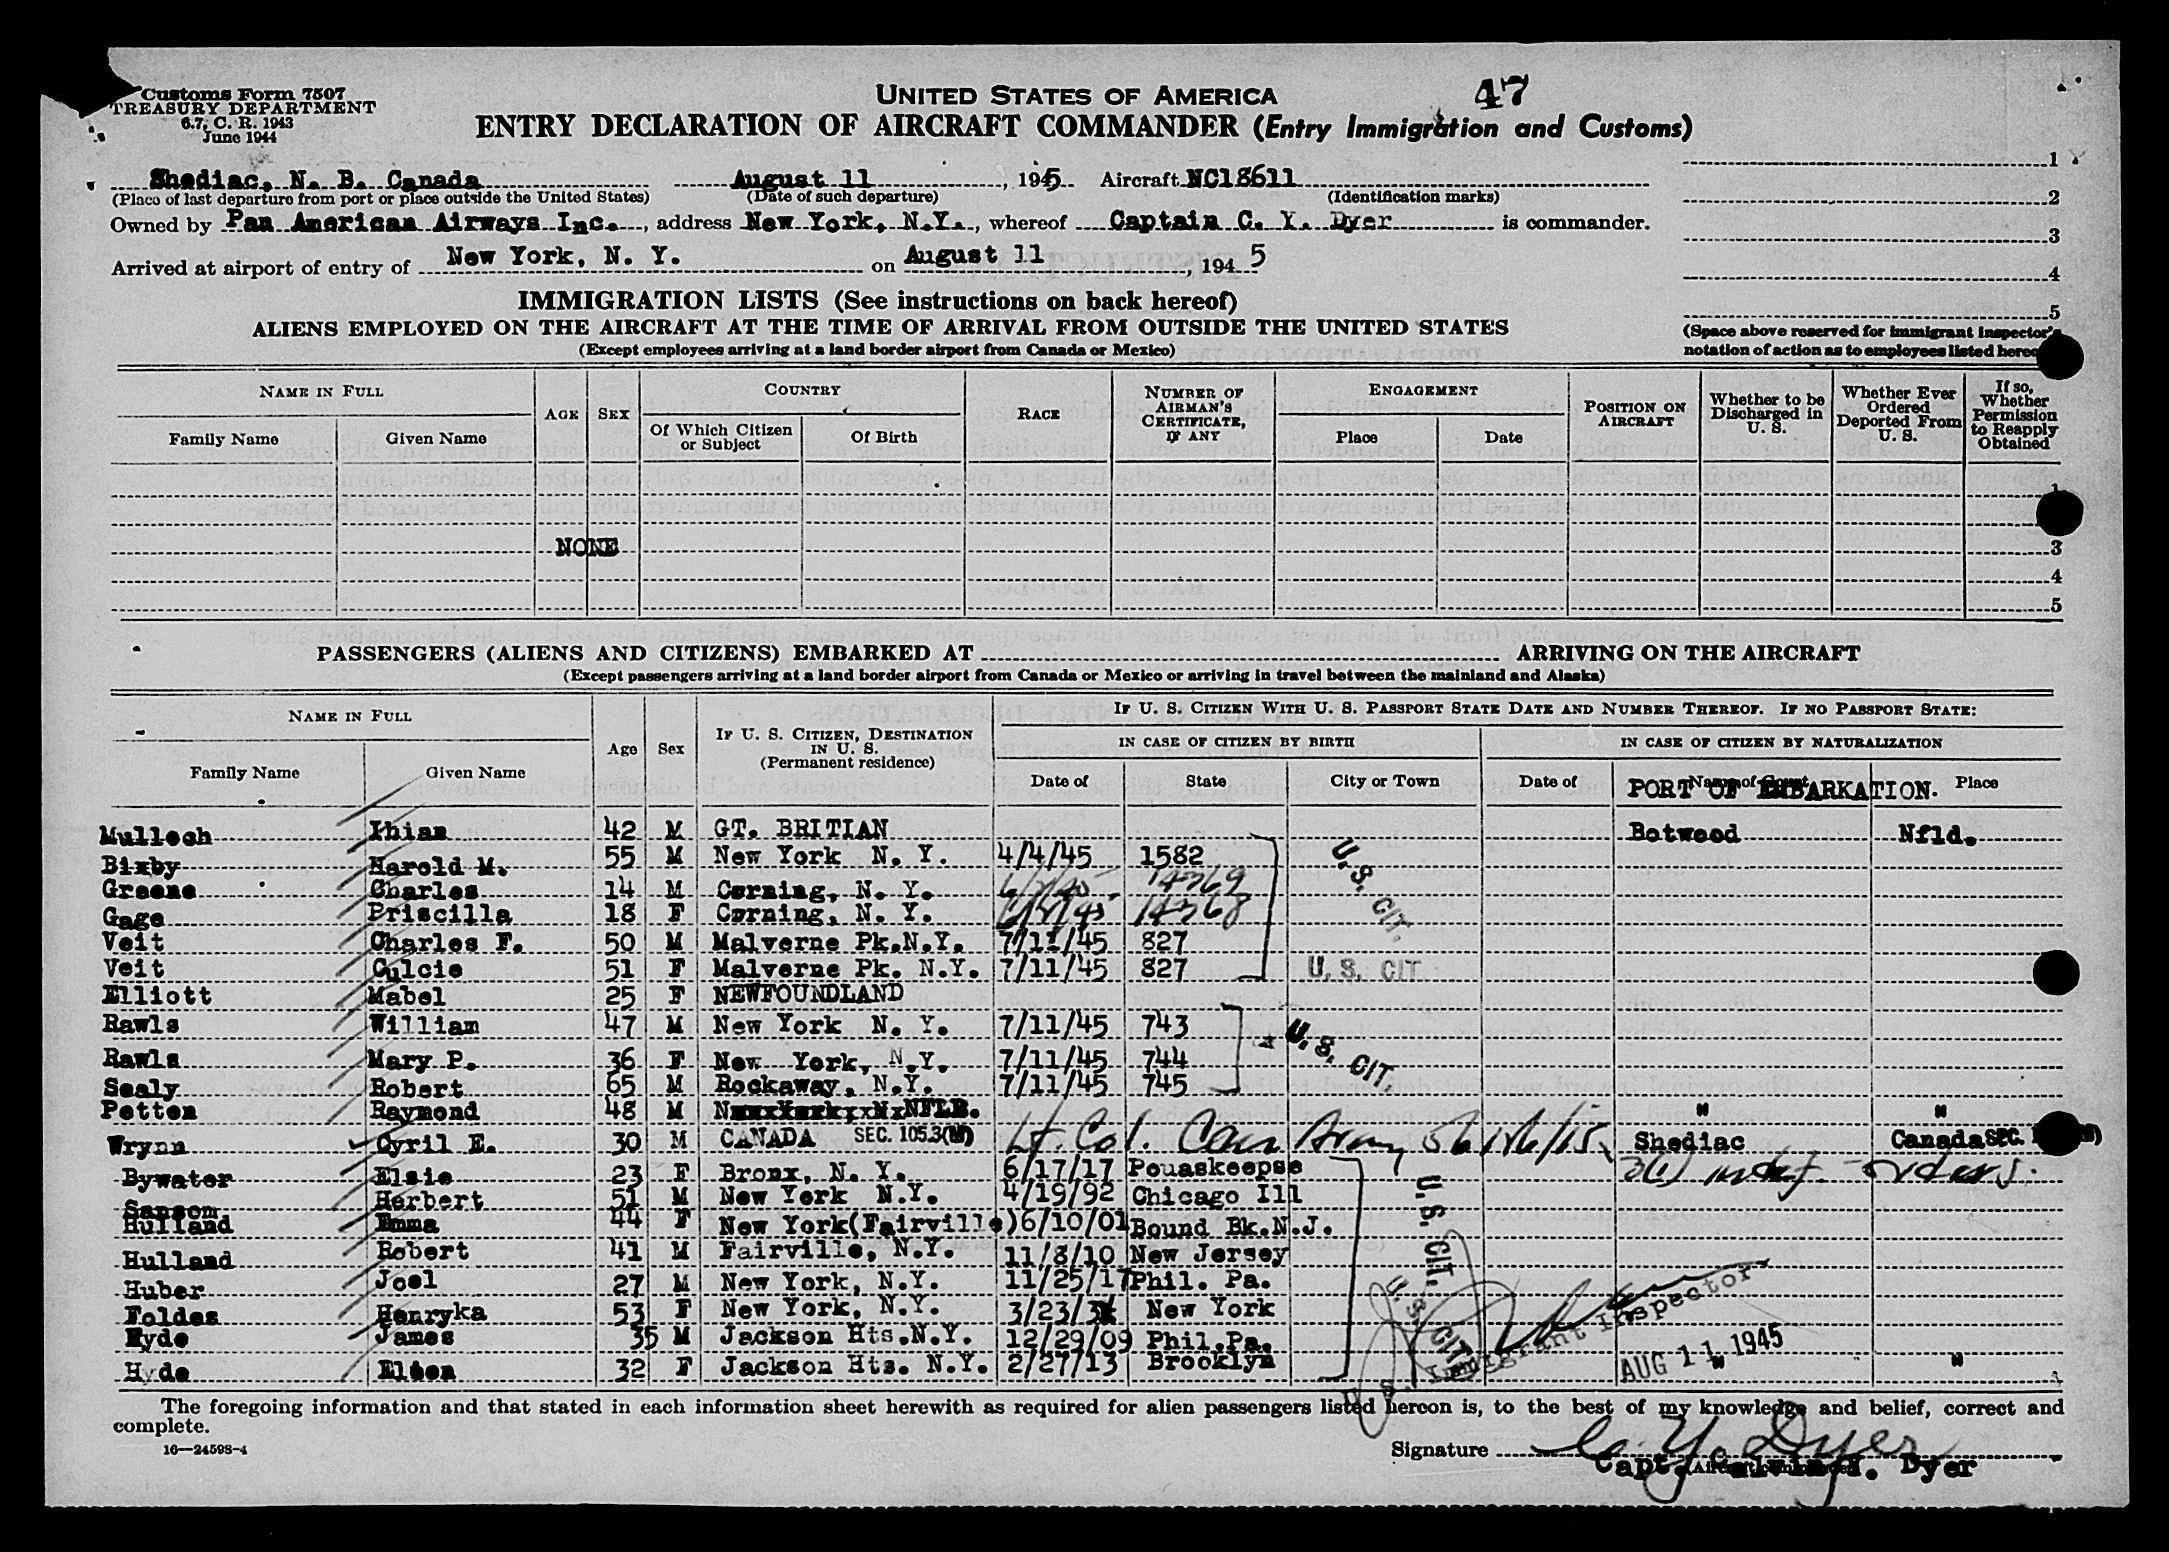 Customs Form 7507
TREASURY DEPARTMENT
6.7, C. R. 1943
June 1944
UNITED STATES OF AMERICA
47
ENTRY DECLARATION OF AIRCRAFT COMMANDER (Entry Immigration and Customs)
Shediac, N. B. Canada August 11, 1945 Aircraft NC18611
(Place of last departure from port or place outside the United States) (Date of such departure) (Identification marks)
Owned by Pan American Airways Inc., address New York, N.Y., whereof Captain C. Y. Dyer is commander.
Arrived at airport of entry of New York, N. Y. on August 11, 1945
1
2
3
4
5
(Space above reserved for immigrant inspector's
notation of action as to employees listed hereon
IMMIGRATION LISTS (See instructions on back hereof)
ALIENS EMPLOYED ON THE AIRCRAFT AT THE TIME OF ARRIVAL FROM OUTSIDE THE UNITED STATES
(Except employees arriving at a land border airport from Canada or Mexico)
NAME IN FULL
Family Name Given Name
AGE SEX
COUNTRY
Of Which Citizen or Subject
Of Birth
RACE
NUMBER OF AIRMAN'S CERTIFICATE, IF ANY
ENGAGEMENT
Place Date
POSITION ON AIRCRAFT
Whether to be Discharged in U. S.
Whether Ever Ordered Deported From U. S.
If so, Whether Permission to Reapply Obtained
1
NONE 3
4
5
PASSENGERS (ALIENS AND CITIZENS) EMBARKED AT ARRIVING ON THE AIRCRAFT
(Except passengers arriving at a land border airport from Canada or Mexico or arriving in travel between the mainland and Alaska)
NAME IN FULL
Family Name Given Name
Age Sex
IF U. S. CITIZEN, DESTINATION IN U. S. (Permanent residence)
IF U. S. CITIZEN WITH U. S. PASSPORT STATE DATE AND NUMBER THEREOF. IF NO PASSPORT STATE:
IN CASE OF CITIZEN BY BIRTH IN CASE OF CITIZEN BY NATURALIZATION
Date of State City or Town Date of Name of Court Place
PORT OF EMBARKATION.
Mulloch Ihian 42 M GT. BRITIAN Botwood Nfld.
Bixby Harold M. 55 M New York N. Y. 4/4/45 1582
Greene Charles 14 M Corning, N. Y. 14369
Gage Priscilla 18 F Corning, N. Y. 14368
Veit Charles F. 50 M Malverne Pk.N.Y. 7/11/45 827
Veit Culcie 51 F Malverne Pk. N.Y. 7/11/45 827
U. S. CIT.
U. S. CIT
Elliott Mabel 25 F NEWFOUNDLAND
Rawls William 47 M New York N. Y. 7/11/45 743
Rawls Mary P. 36 F New York, N.Y. 7/11/45 744
Sealy Robert 65 M Rockaway, N.Y. 7/11/45 745
U. S. CIT.
Petten Raymond 48 M NFLD. " "
Wrynn Cyril E. 30 M CANADA SEC. 105.3 Lt. Col. Can Army Shediac Canada SEC.
Bywater Elsie 23 F Bronx, N. Y. 6/17/17 Pouaskeepse orders.
Sansom Herbert 51 M New York N.Y. 4/19/92 Chicago Ill
Hulland Emma 44 F New York(Fairville) 6/10/01 Bound Bk.N.J.
Hulland Robert 41 M Fairville, N.Y. 11/8/10 New Jersey
Huber Joel 27 M New York, N.Y. 11/25/17 Phil. Pa.
Foldes Henryka 53 F New York, N.Y. New York
Hyde James 35 M Jackson Hts.N.Y. 12/29/09 Phil.Pa.
Hyde Elten 32 F Jackson Hts. N.Y. 2/27/13 Brooklyn " "
U. S. CIT.
U. S. CIT.
U. S. Immigrant Inspector
AUG 11 1945
The foregoing information and that stated in each information sheet herewith as required for alien passengers listed hereon is, to the best of my knowledge and belief, correct and
complete.
16—24598-4
Signature C. Y. Dyer
Capt. Calvin Y. Dyer